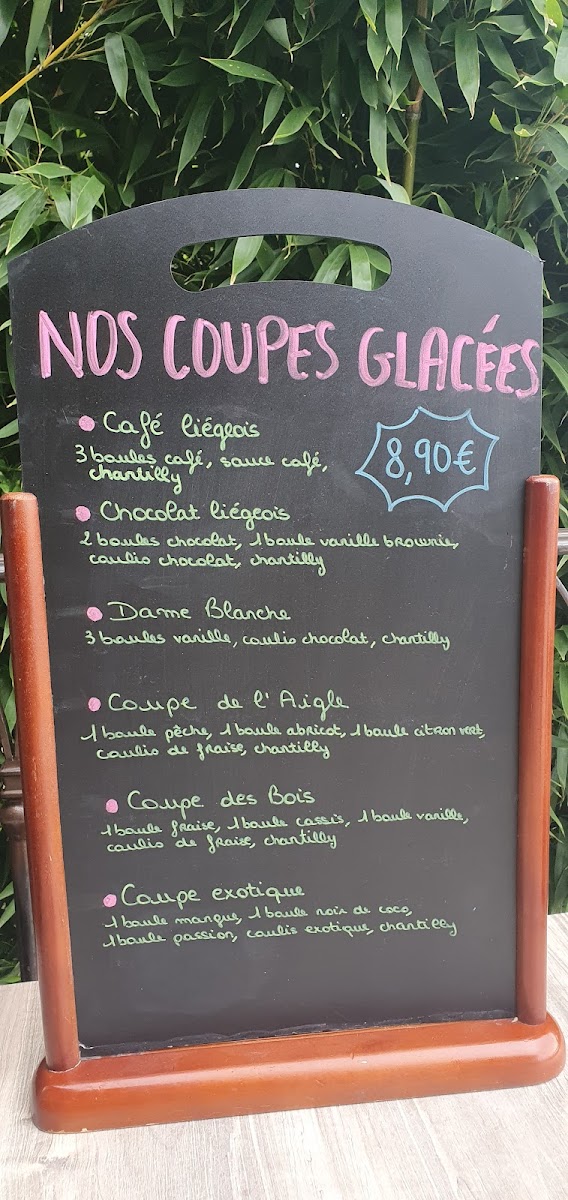 NOS COUPES GLACÉES
Café liégeois
8,90€
3 boules café, sauce café,
chantilly
Chocolat liégeois
2 boules chocolat, 1 boule vanille brownie,
coulis chocolat, chantilly
Dame Blanche
3 boules vanille, coulis chocolat, chantilly
Coupe de l'Aigle
1 boule pêche, 1 boule abricot, 1 boule citron vert,
coulis de fraise, chantilly
Coupe des Bois
1 boule fraise, 1 boule cassis, 1 boule vanille,
coulis de fraise, chantilly
Coupe exotique
1 boule mangue, 1 boule noix de coco,
1 boule passion, coulis exotique, chantilly